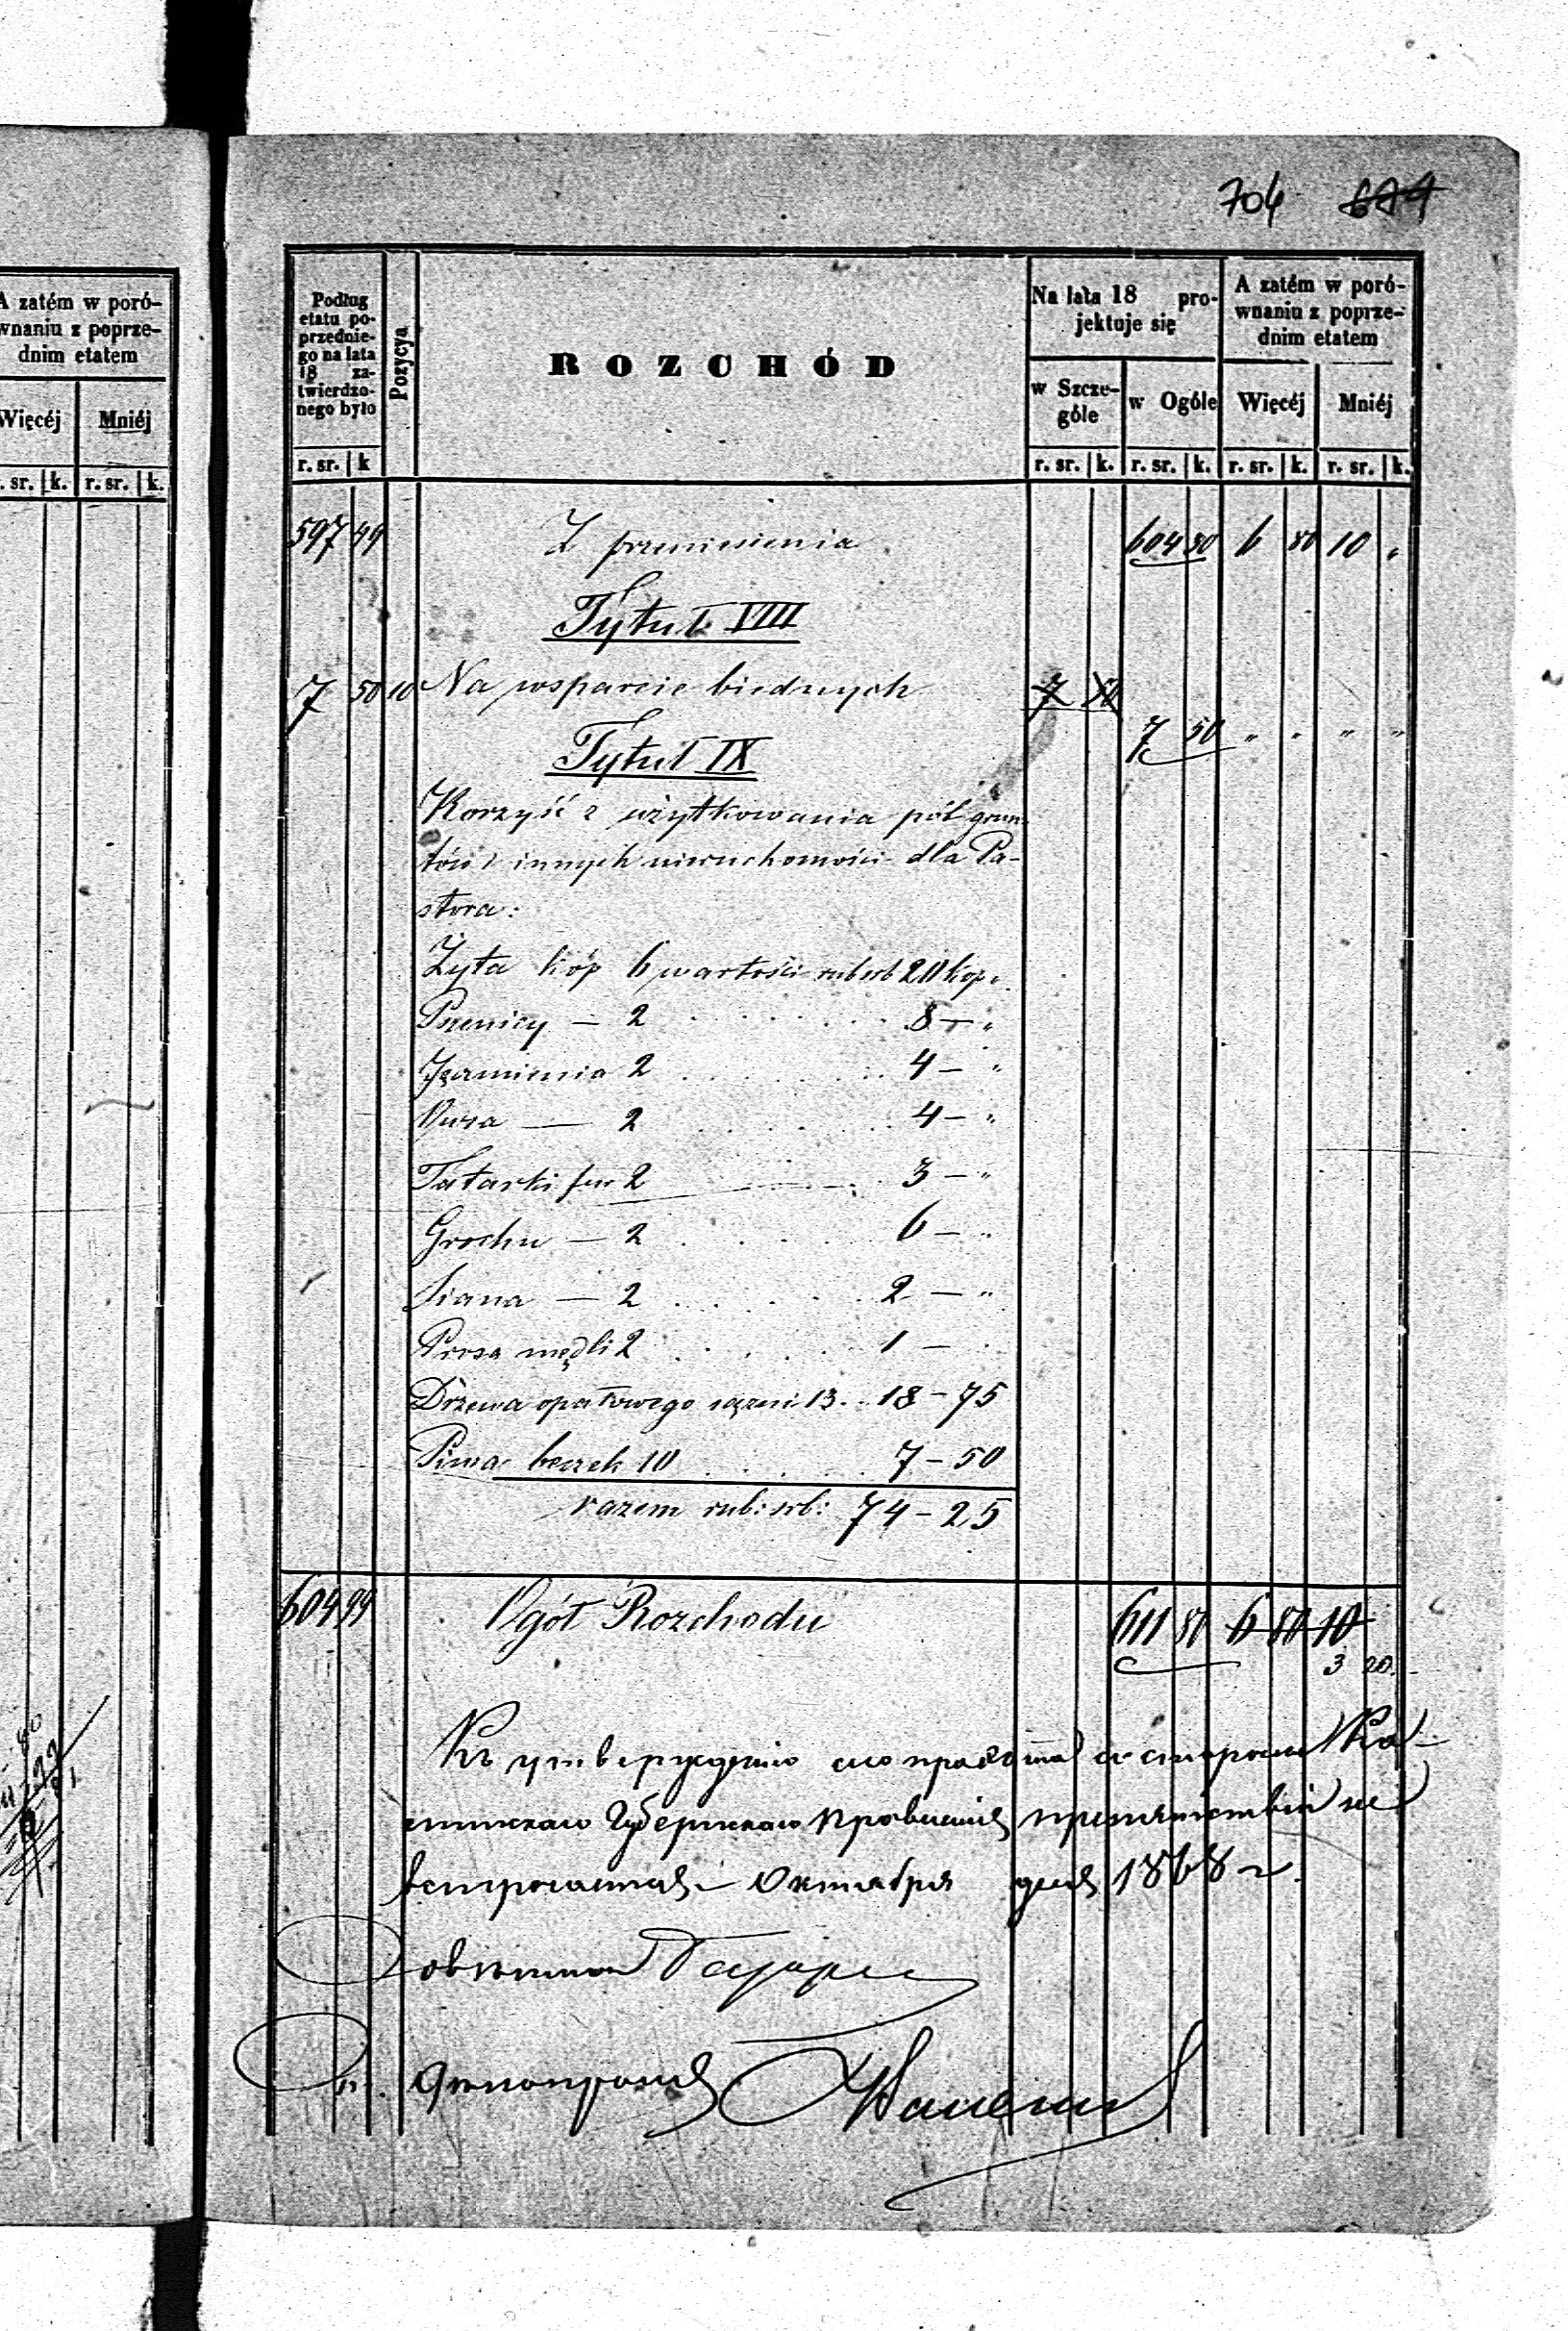 A zatém w poró-
wnaniu z poprze-
dnim etatem
Więcéj Mniéj
r. sr. k. r. sr. k.
704 694
Podług
etatu po-
przednie-
go na lata
18 za-
twierdzo-
nego było
r. sr. k
Pozycya
ROZCHÓD
Na lata 18 pro-
jektuje się
w Szcze-
góle
w Ogóle
r. sr. k. r. sr. k.
A zatém w poró-
wnaniu z poprze-
dnim etatem
Więcéj Mniéj
r. sr. k. r. sr. k.
597 49 Z przeniesienia 604 30 6 80 10 "
Tytuł VIII
7 50 10 Na wsparcie biednych 7 50
7 50 " " " "
Tytuł IX
Korzyść z użytkowania pól grun-
tów i innych nieruchomości dla Pa-
stora:
Żyta kóp 6 wartości rub srb 20 kop "
Pszenicy — 2 8 — "
Jęczmienia 2 4 — "
Owsa — 2 4 — "
Tatarki fur 2 3 — "
Grochu — 2 6 — "
Siana — 2 2 — "
Prosa mędli 2 1 —
Drzewa opałowego sążeni 13 18 — 75
Piwa beczek 10 7 — 50
razem rub: srb: 74 — 25
604 99 Ogół Rozchodu 611 80 6 80 10
3 20
Къ утвержденію со стороны Ка-
Губернскаго Правленія препятствій не
Октября дня 1868 г.
Совѣтникъ
Дѣлопроизв